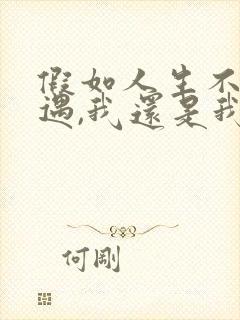 假如人生不
遇,我還是我
何剛